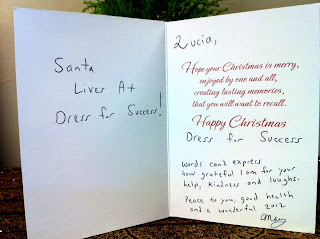 Santa
Lives At
Dress for Success!
Lucia,
Hope your Christmas is merry,
enjoyed by one and all,
creating lasting memories,
that you will want to recall.
Happy Christmas
Dress for Success
Words can't express
how grateful I am for your
help, kindness and laughs.
Peace to you, good health
and a wonderful 2012
Mary